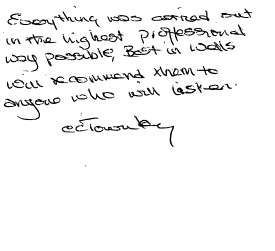 Everything was carried out
in the highest proffessional
way possible, Best in Wells
will recommend them to
anyone who will listen.